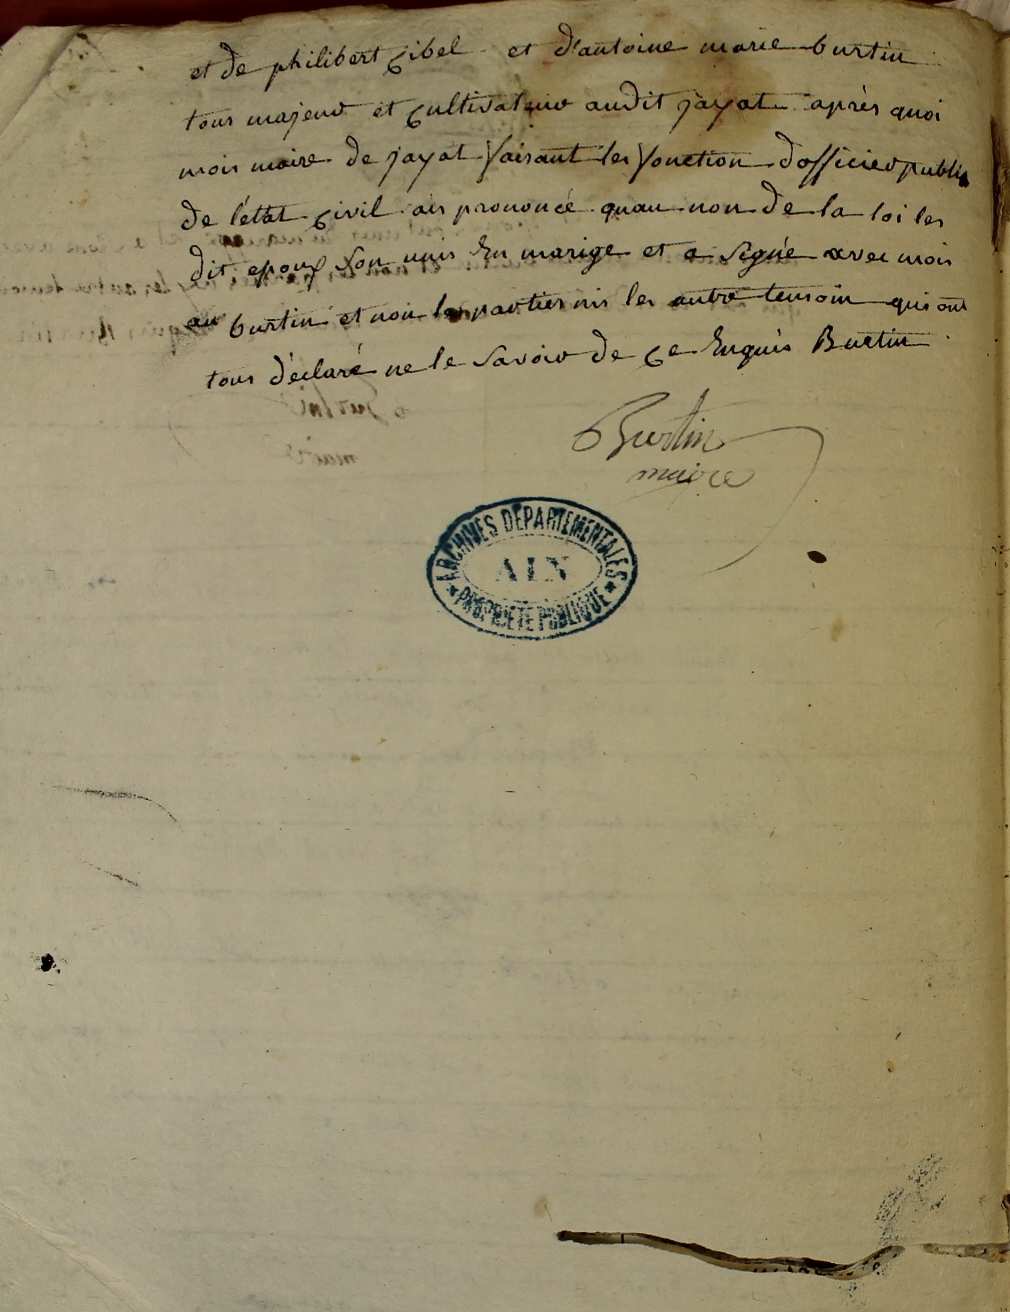 et de philibert Cibel et d'antoine marie burtin
tous majeur et Cultivateur audit jayat après quoi
mois maire de jayat faisant les fonction d'officier public
de l'état Civil ais prononcé quau non de la loi les
dit epoux Son unis En marige et a Signé avec mois
au burtin et non les parties nis les autre temoin qui ont
tous déclaré ne le Savoir de Ce Enquis Burtin
Burtin
maire
ARCHIVES DÉPARTEMENTALES
AIN
PROPRIÉTÉ PUBLIQUE